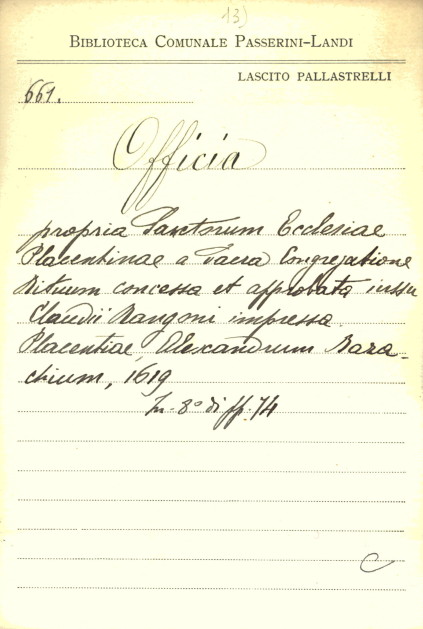 13)
BIBLIOTECA COMUNALE PASSERINI-LANDI
LASCITO PALLASTRELLI
661.
Officia
propria Sanctorum Ecclesiae
Placentinae a Sacra Congregatione
Rituum concessa et approbata iussu
Claudii Rangoni impressa.
Placentiae, Alexandrum Baza-
chium, 1619
In-8° di ff. 74
C